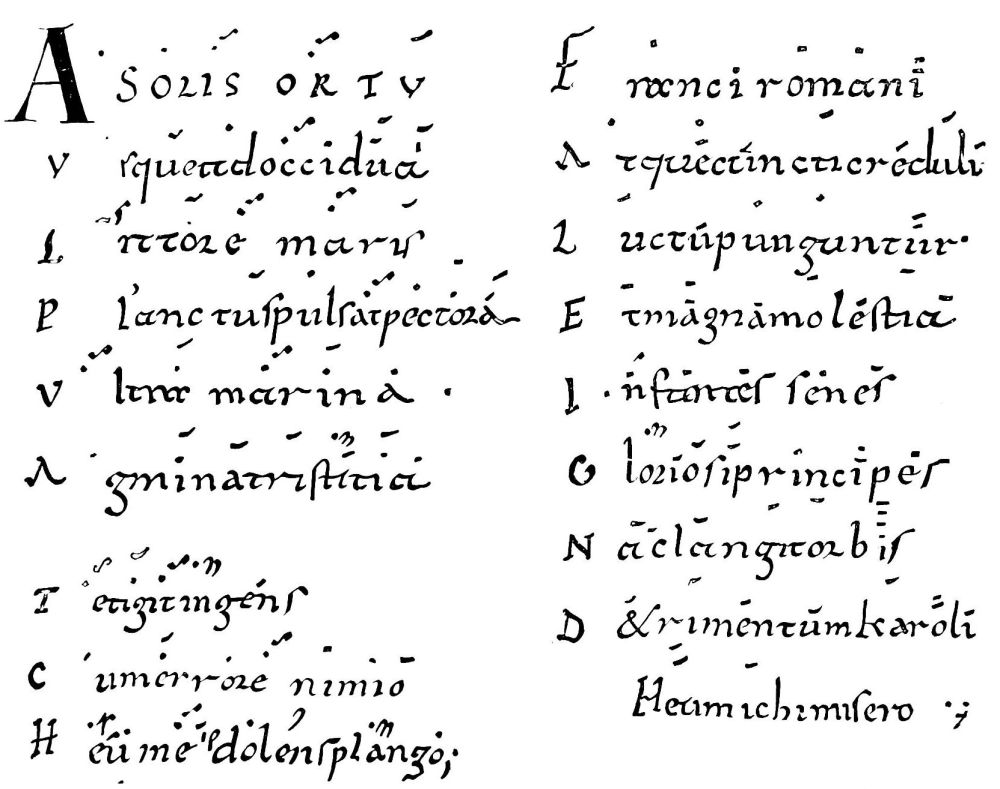 A SOLIS ORTV
V sque ad occidua
L ittore maris
P lanctus pulsat pectora
V ltra marina ·
A gmina tristitia
T etigit ingens
C um errore nimio
H eu me dolens plango;
F ranci romani
A tque cuncti creduli
L uctu punguntur·
E t magna molestia
I nfantes senes
G loriosi principes
N a clangit orbis
D &rimentum karoli
Heu michi misero ·;